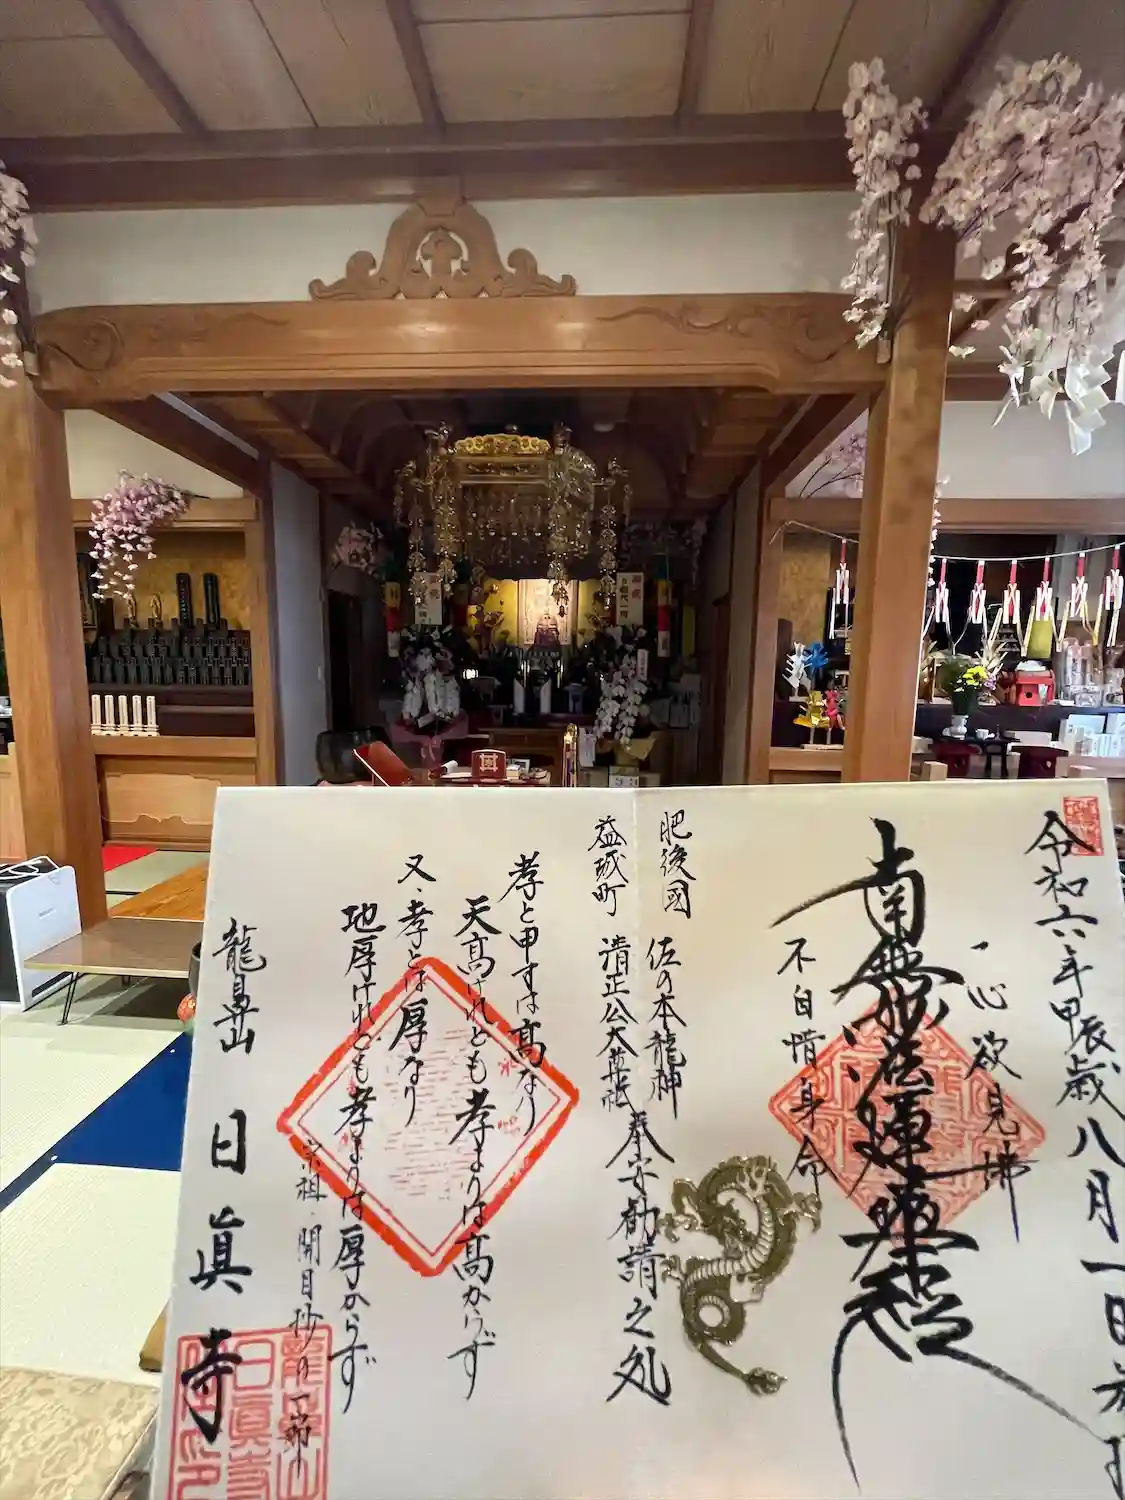 令和六年甲辰歳八月一日
一心欲見佛
南無妙法蓮華経
不自惜身命
肥後國 佐の本龍神
益城町 清正公大尊祇
奉安勧請之処
孝と申すは高なり
天高けれども孝よりは高からず
又、孝とは厚なり
地厚けれども孝よりは厚からず
宗祖・開目抄の一節
龍鼻山 日眞寺